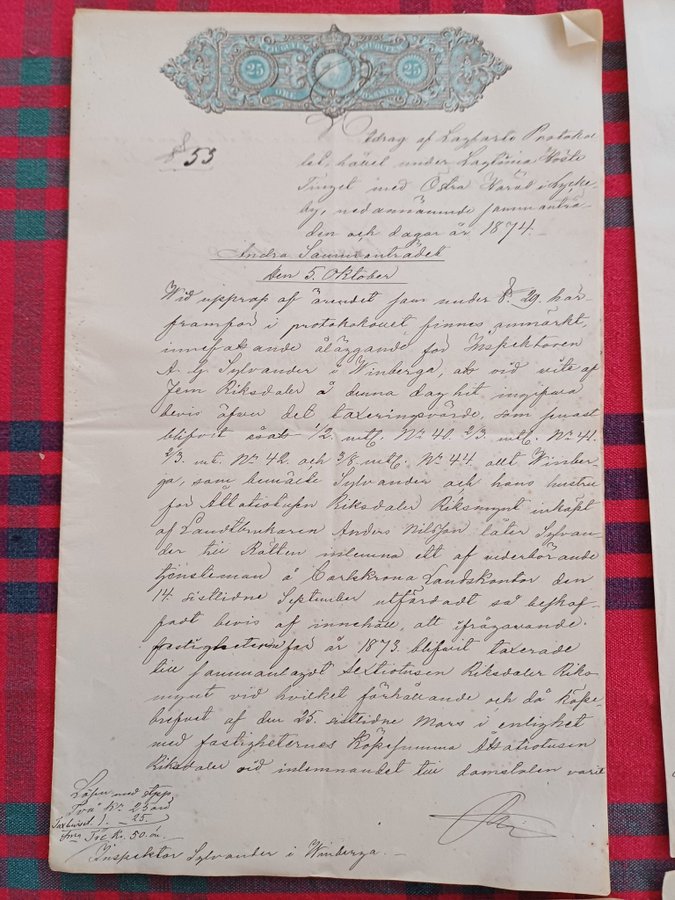 25 TJUGUFEM TJUGUFEM 25
§ 53
Utdrag af Lagfarts Protokol-
let, hållet under Lagtima Höste
Tinget med Östra Härad i Lycke-
by, nedannämnde sammanträ-
den och dagar år 1874.
Andra Sammanträdet
den 5. Oktober
Wid upprop af ärendet som under §. 29. här-
framför i protokollet finnes anmärkt,
innefattande åläggande för Inspektoren
A. G. Sylvander i Winberga, att vid vite af
Fem Riksdaler å denna dag hit ingifva
bevis öfver det taxeringsvärde, som senast
blifvit åsatt 1/2 mtl. No 40. 2/3 mtl. No 41.
2/3 mt. No 42. och 3/8 mtl. No 44. allt Winber-
ga, som bemälte Sylvander och hans hustru
för Åttatiotusen Riksdaler Riksmynt inköpt
af Landtbrukaren Anders Nilsson låter Sylvan-
der till Rätten inlemna ett af vederbörande
tjensteman å Carlskrona Landskontor den
14. sistlidne September utfärdadt så beskaf-
fadt bevis af innehåll, att ifrågavarande
fastigheter för år 1873 blifvit taxerade
till sammanlagdt Sextiotusen Riksdaler Riks-
mynt vid hvilket förhållande och då köpe-
brefvet af den 25. sistlidne Mars i enlighet
med fastigheternes köpesumma Åttatiotusen
Riksdaler vid inlemnandet till domstolen varit
Lösen med stpp.
Två Kr 25 öre
25
Kr. 50 ör
Inspektor Sylvander i Winberga.